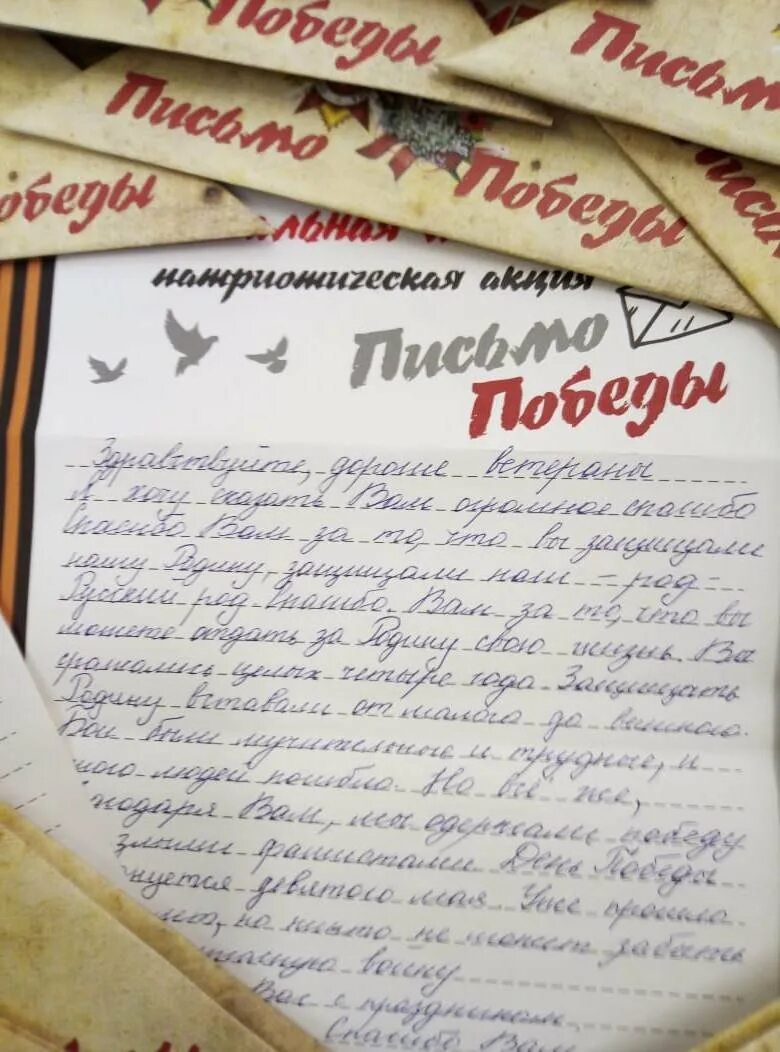 Победы
Письмо
Письмо
Победы
Победы
альная
патриотическая акция
Письмо
Победы
Здравствуйте, дорогие ветераны
Я хочу сказать Вам огромное спасибо
Спасибо Вам за то, что вы защищали
нашу Родину, защищали наш - род -
Русский род Спасибо Вам за то, что вы
можете отдать за Родину свою жизнь. Вы
сражались целых четыре года. Защищать
Родину вставали от малого до великого.
Бои были мучительные и трудные, и
много людей погибло. Но всё же,
годаря Вам, мы одержали победу
злыми фашистами День Победы
нуется девятого мая. Уже прошло
лет, но никто не может забыть
войну
Вас с праздником
Спасибо Вам